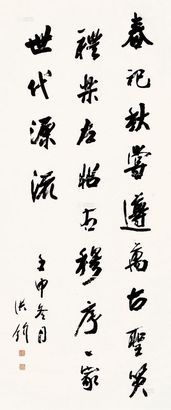 春祀秋嘗遵萬古聖賢
禮樂左昭右穆序一家
世代源流
壬申冬月
洪鈞